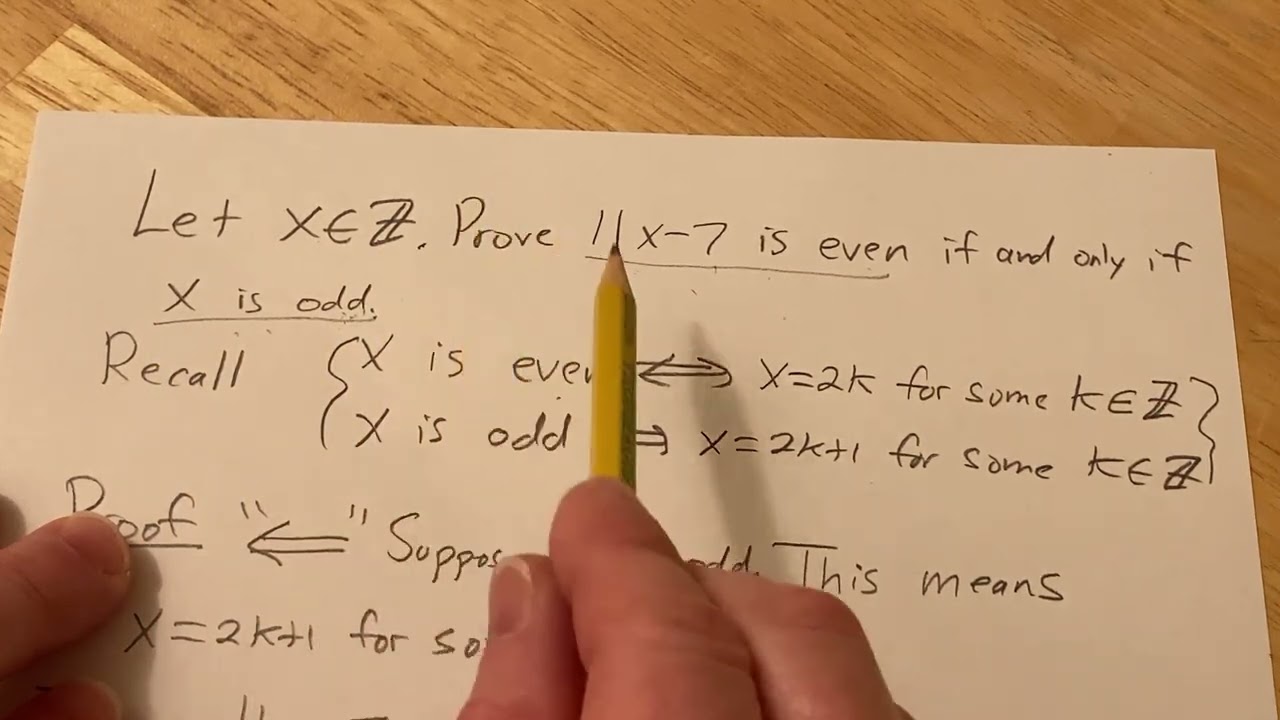 Let x∈ℤ. Prove 11x-7 is even if and only if
x is odd.
Recall { x is even ⟺ x=2k for some k∈ℤ }
x is odd ⟹ x=2k+1 for some k∈ℤ
Proof "⟸" Suppos odd. This means
x=2k+1 for so